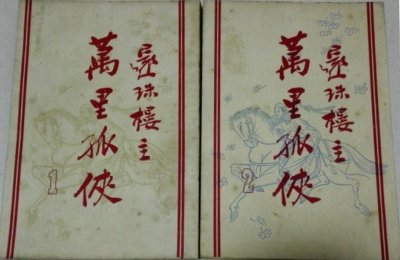 還珠樓主
萬里孤俠
1
還珠樓主
萬里孤俠
2